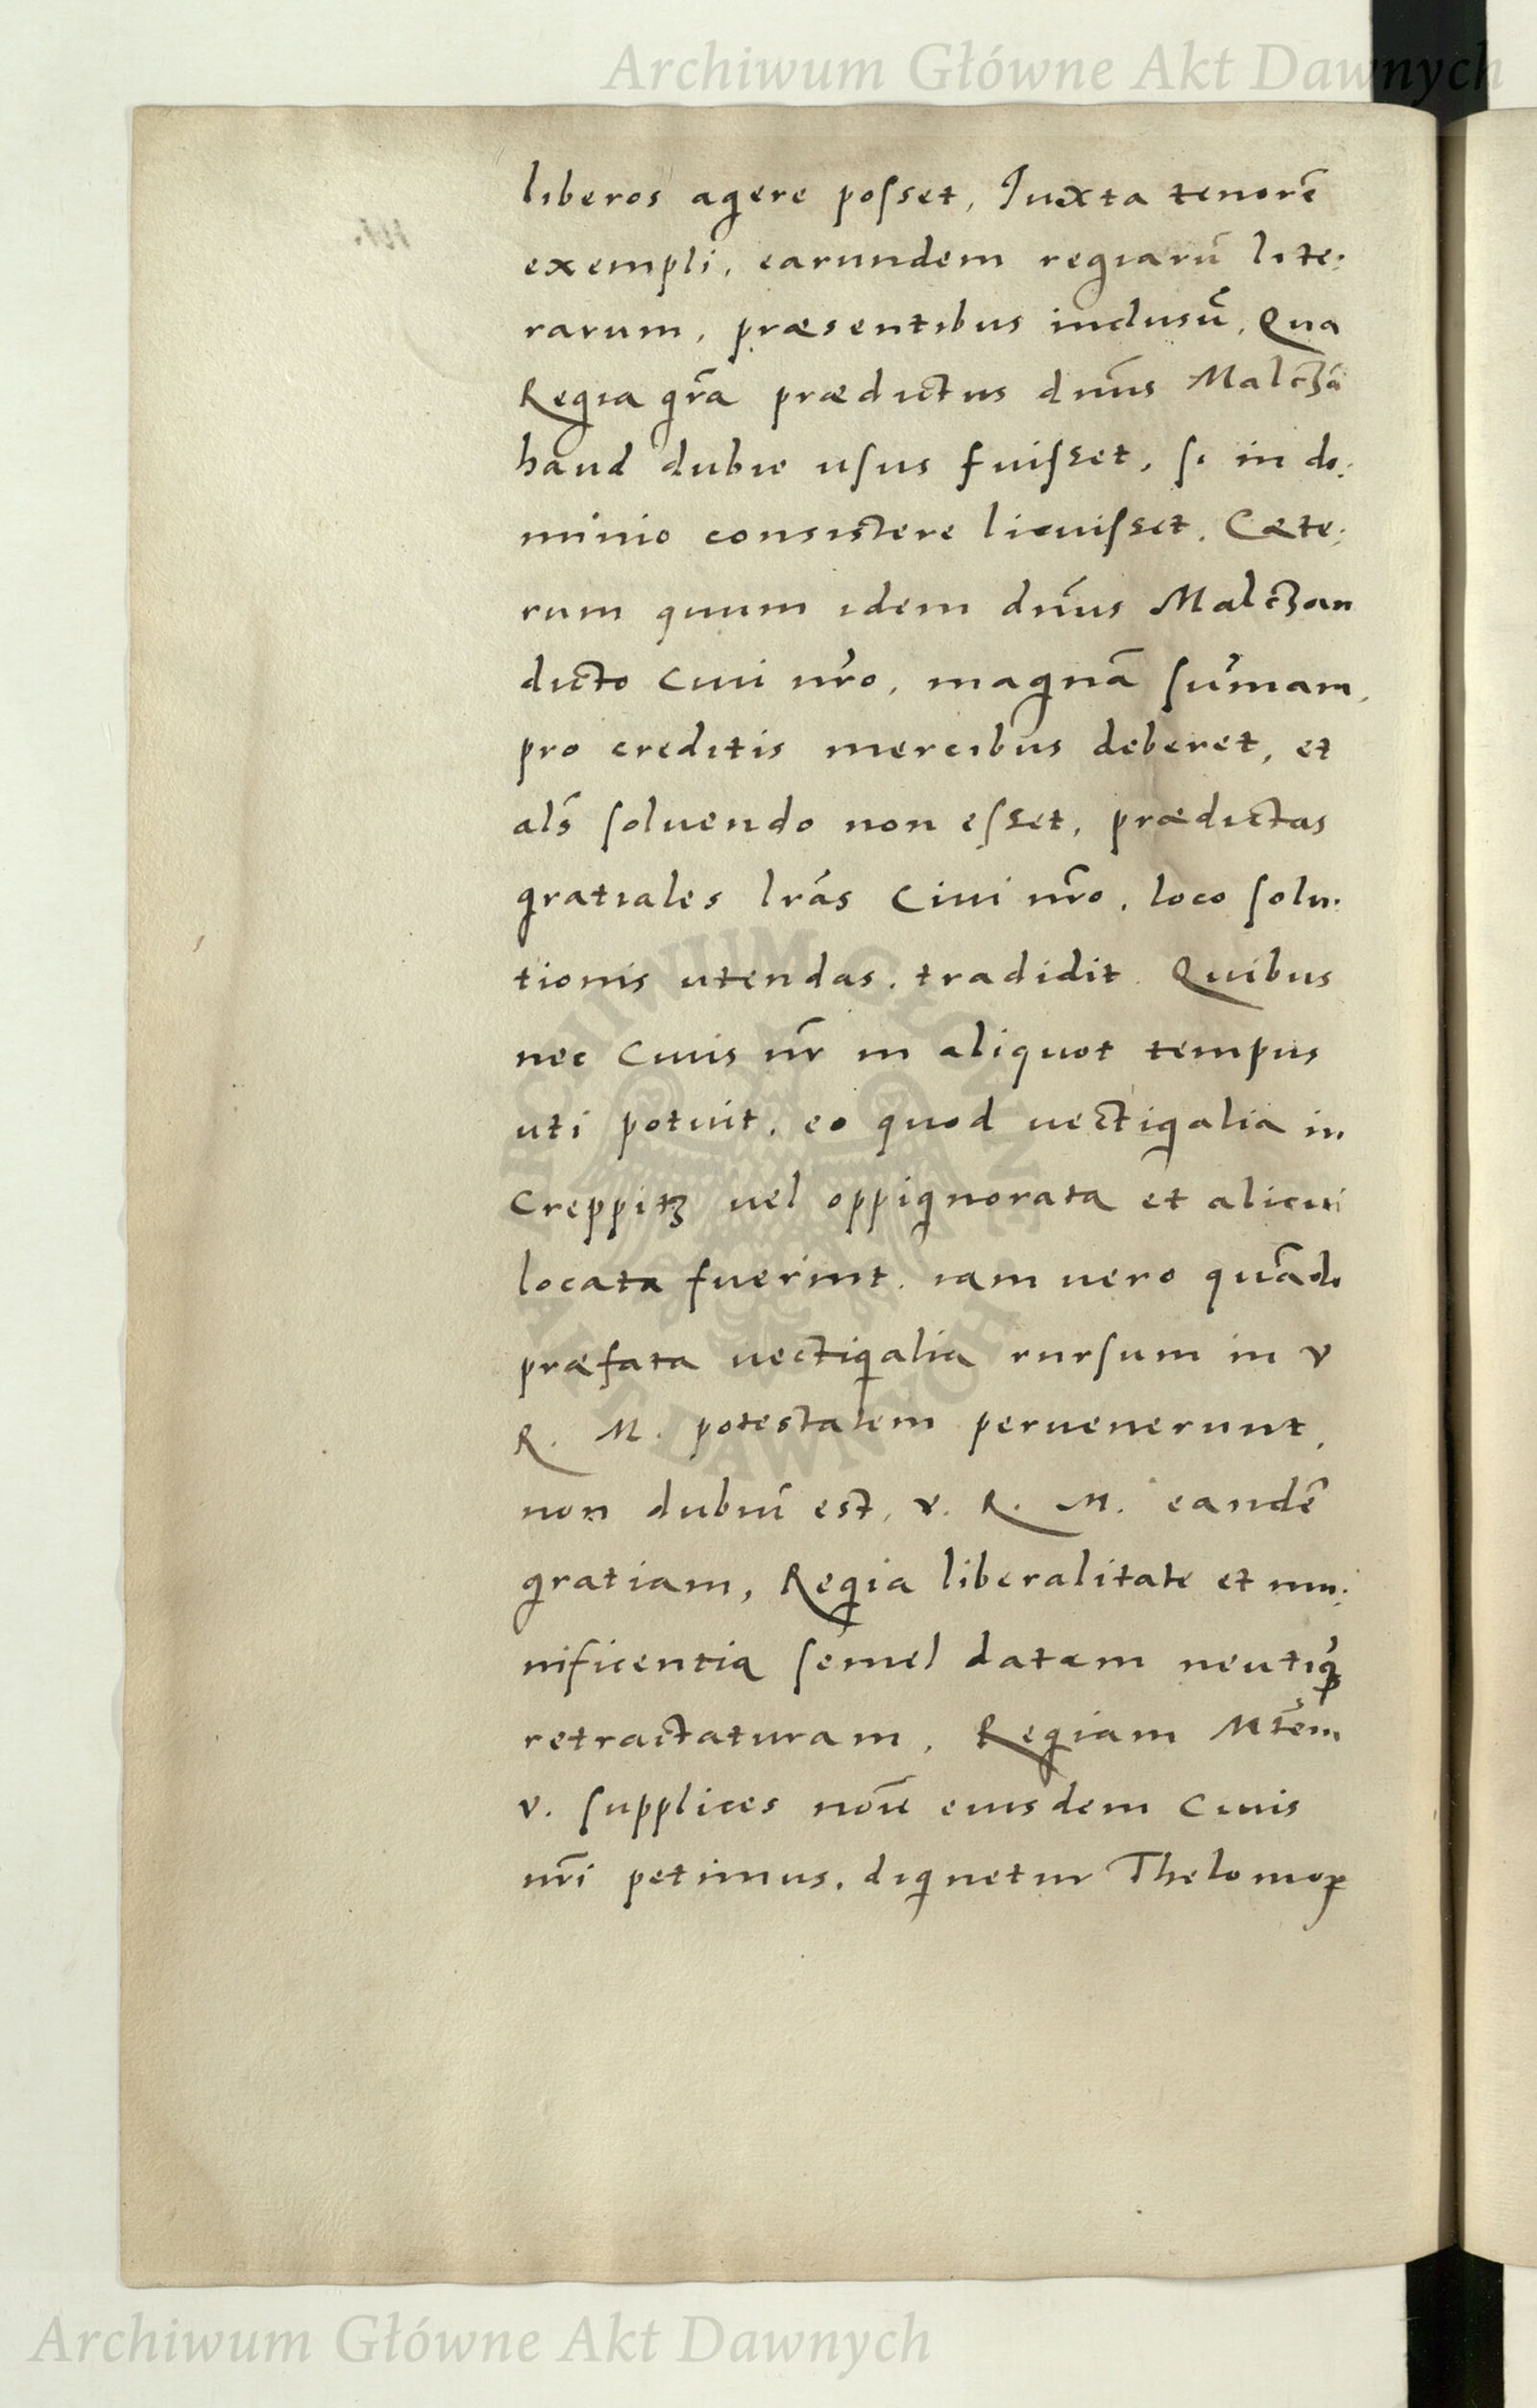 Archiwum Główne Akt Dawnych
liberos agere posset, Iuxta tenorē
exempli, earundem regiarū lite:
rarum, præsentibus inclusū, Qua
Regia grā prædictus dn̄us Malczā
haud dubie usus fuisset, si in do:
minio consistere licuisset. Cæte:
rum quum idem dn̄us Malczan
dicto Ciui nr̄o, magnā sum̄am,
pro creditis mercibus deberet, et
als̄ soluendo non esset, prædictas
gratiales lrās Ciui nr̄o, loco solu:
tionis utendas, tradidit. Quibus
nec Ciuis nr̄ in aliquot tempus
uti potuit, eo quod uectigalia in
Creppitz uel oppignorata et alicui
locata fuerint, iam uero quādo
præfata uectigalia rursum in v
R. M. potestatem peruenerunt,
non dubiū est, v. R. M. eandē
gratiam, Regia liberalitate et mu:
nificentia semel datam neutiq̄
retractaturam, Regiam Mtēm
v. supplices noīe eiusdem Ciuis
nr̄i petimus, dignetur Theloniorꝝ
ARCHIWUM GŁÓWNE
AKT DAWNYCH
Archiwum Główne Akt Dawnych